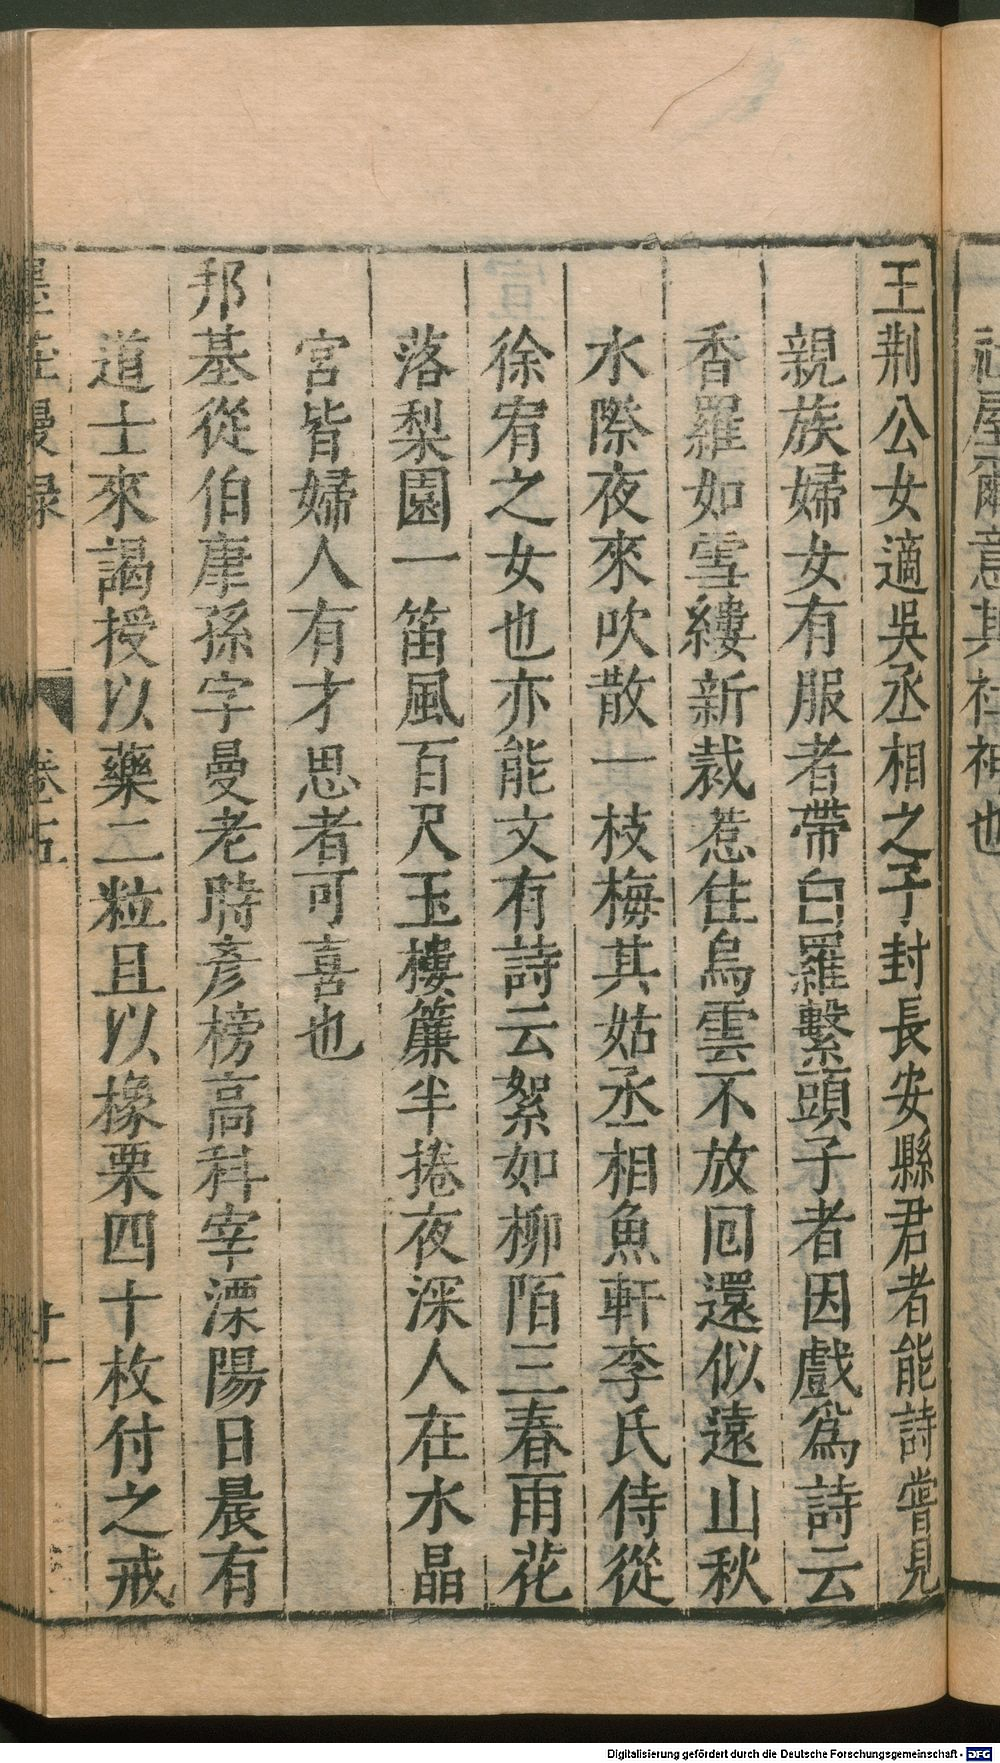 社屋爾意其社神也
王荆公女適吳丞相之子封長安縣君者能詩嘗見
親族婦女有服者帶白羅繫頭子者因戲爲詩云
香羅如雪縷新裁惹住烏雲不放囘還似遠山秋
水際夜來吹散一枝梅其姑丞相魚軒李氏侍從
徐宥之女也亦能文有詩云絮如柳陌三春雨花
落梨園一笛風百尺玉樓簾半捲夜深人在水晶
宮皆婦人有才思者可喜也
邦基從伯康孫字曼老時彥榜高科宰溧陽日晨有
道士來謁授以藥二粒且以橡栗四十枚付之戒
墨莊漫録 卷五 廿一
Digitalisierung gefördert durch die Deutsche Forschungsgemeinschaft - DFG